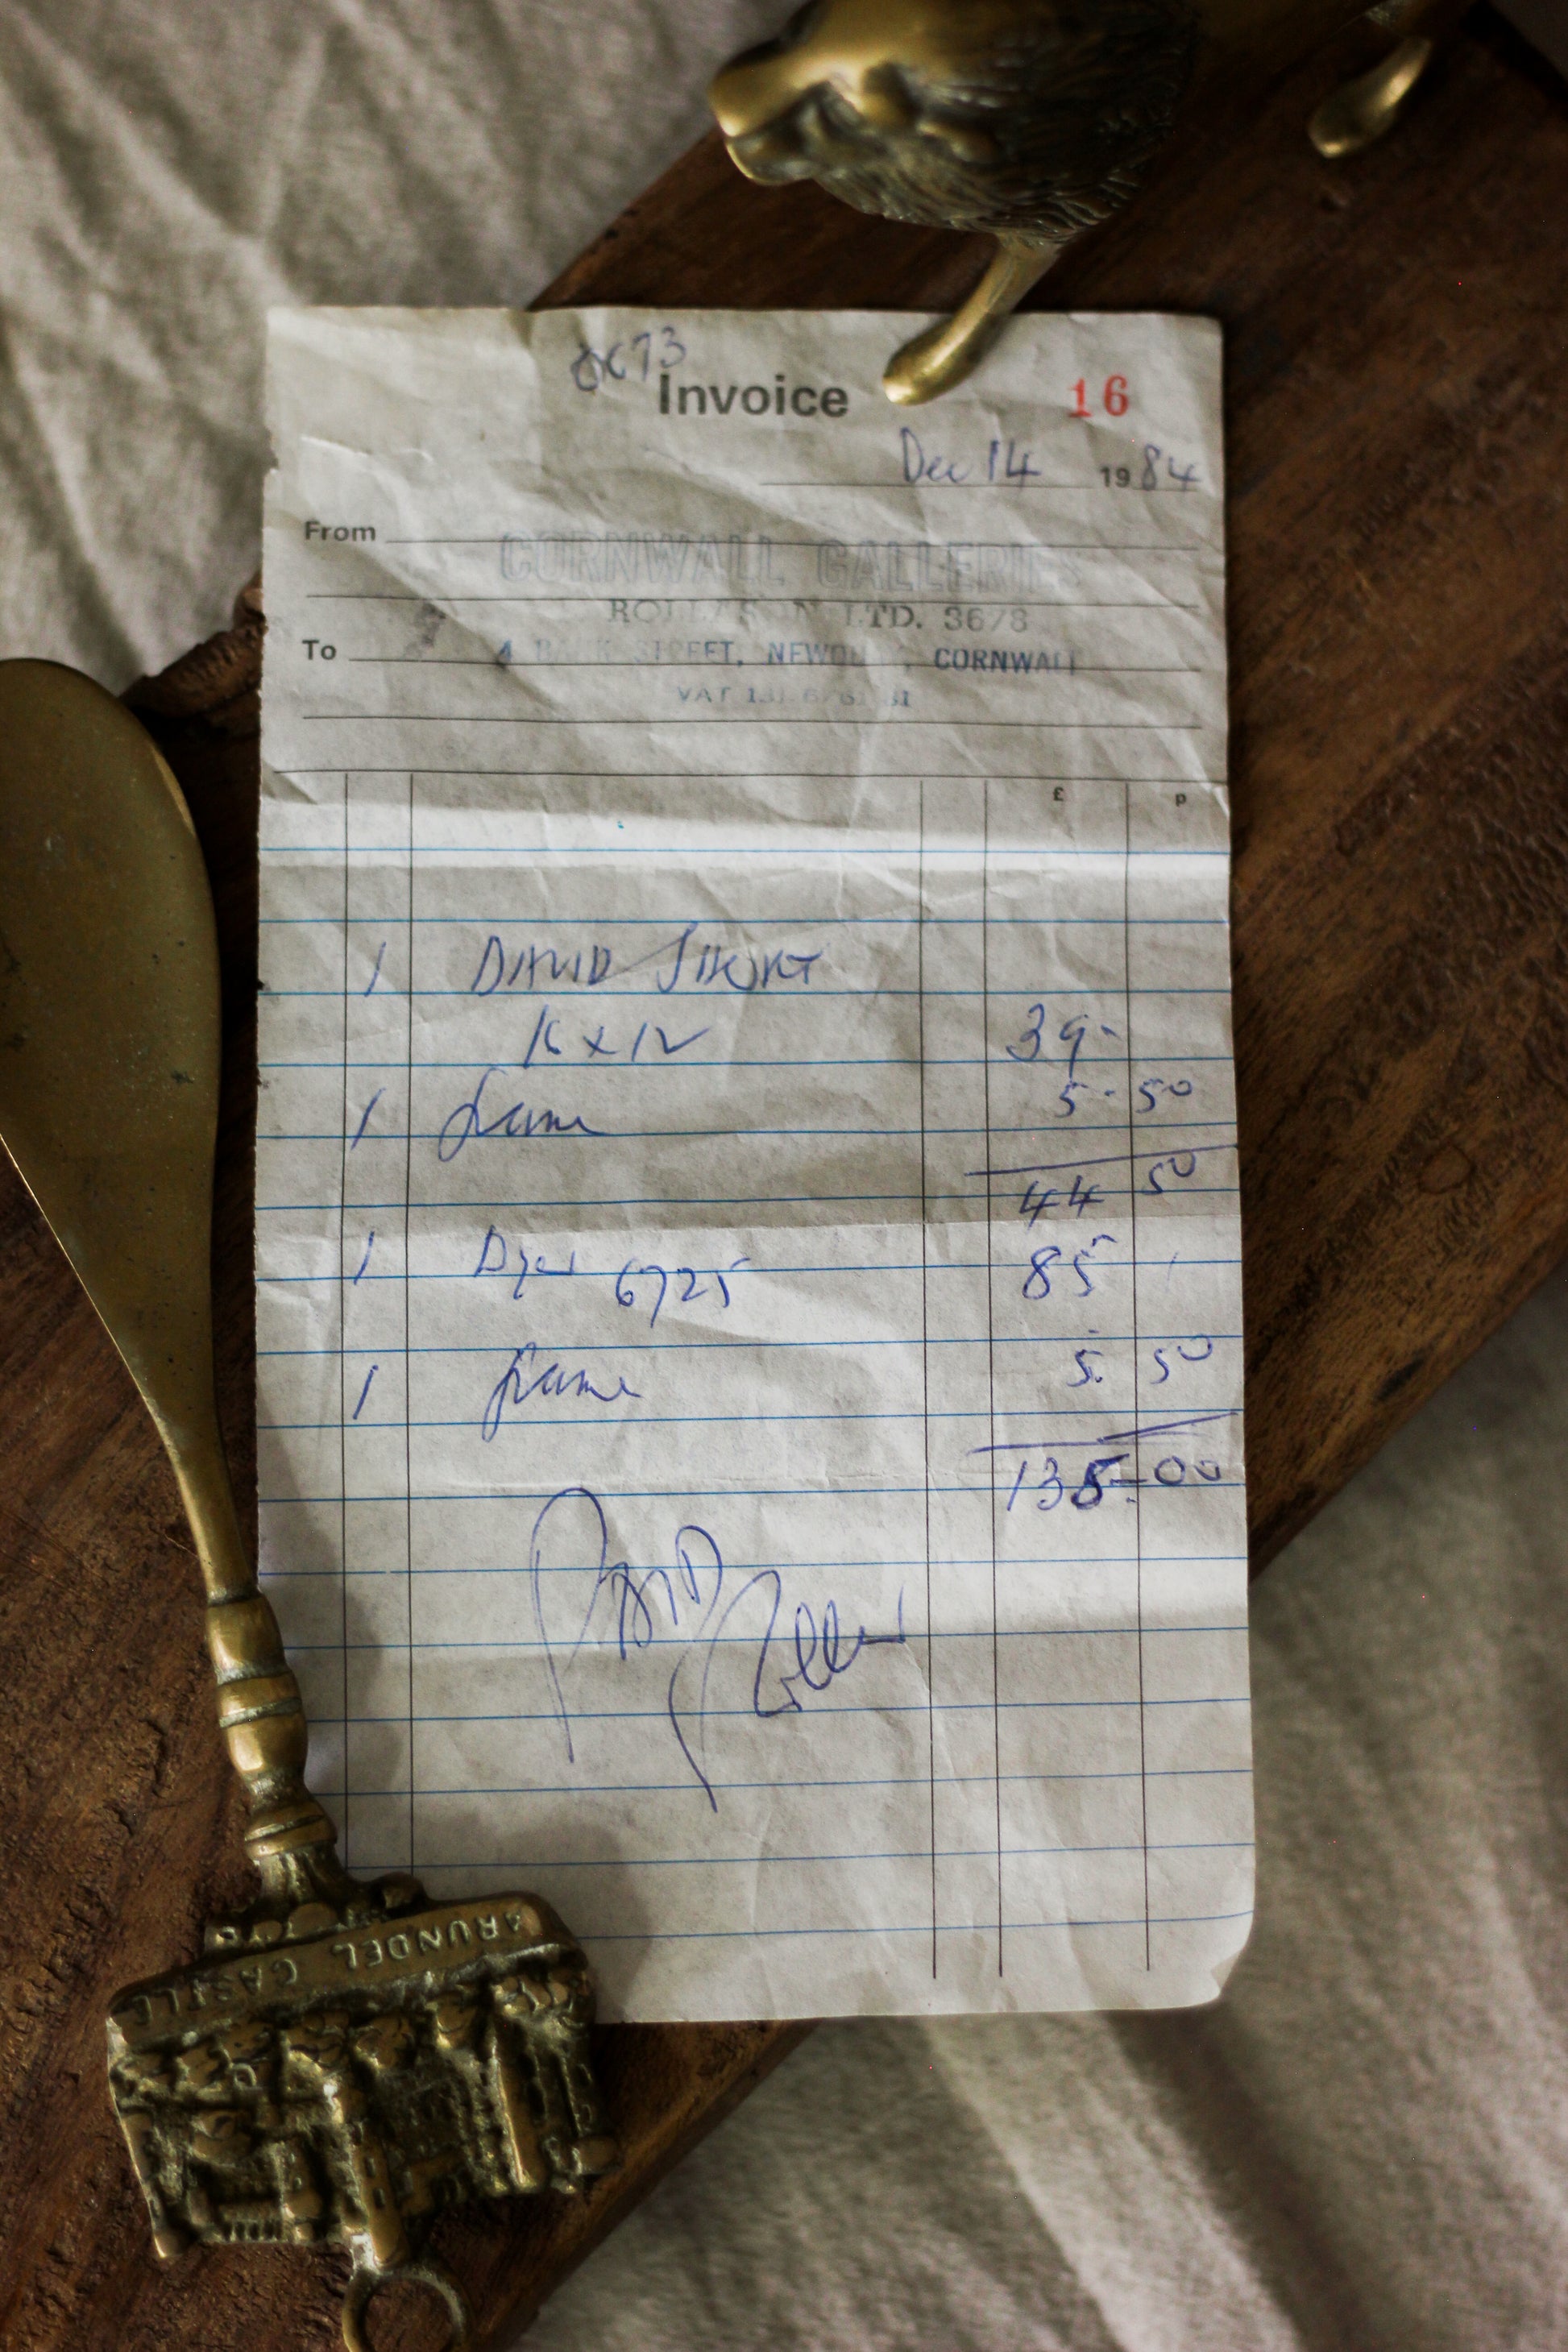 Invoice
16
Dec 14 1984
From
CORNWALL GALLERIES
LTD. 3678
To
4 BANK STREET, NEWQUAY, CORNWALL
VAT
£ p
1 DAVID SHORT
16 x 12 39-
1 frame 5.50
44 50
1 Dyer 6725 85
1 frame 5. 50
135-00
ARUNDEL CASTLE